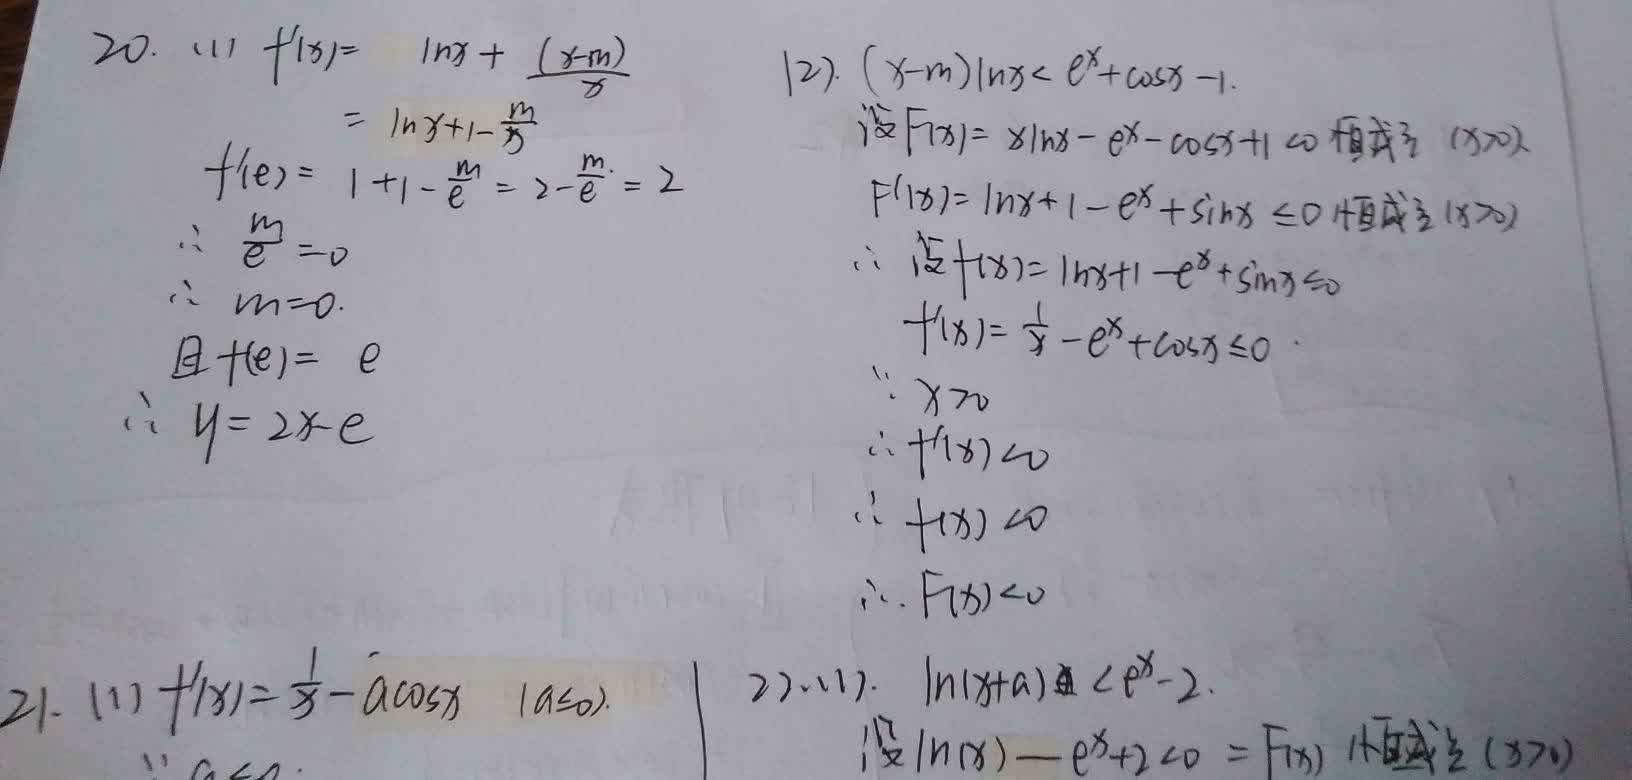 20. (1) f'(x)= lnx+ (x-m)/x
= lnx+1-m/x
f'(e)= 1+1-m/e=2-m/e=2
∴ m/e=0
∴ m=0.
且f(e)= e
∴ y=2x-e
(2). (x-m)lnx<e^x+cosx-1.
设F(x)=xlnx-e^x-cosx+1<0恒成立(x>0)
F'(x)=lnx+1-e^x+sinx≤0恒成立(x>0)
∴ 设f(x)=lnx+1-e^x+sinx≤0
f'(x)=1/x-e^x+cosx≤0
∵ x>0
∴ f'(x)<0
∴ f(x)<0
∴. F(x)<0
21. (1) f'(x)=1/x-acosx (a≤0).
∵ a≤0.
22.(1). ln(x+a)<e^x-2.
设ln(x)-e^x+2<0=F(x) 恒成立(x>0)